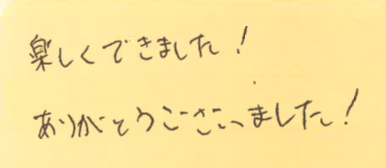 楽しくできました!
ありがとうございました!